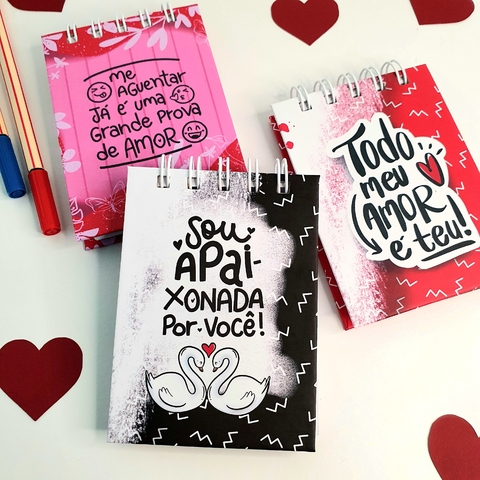 Me
Aguentar
Já é uma
Grande Prova
de Amor
Todo
meu
Amor
é teu!
Sou
Apai-
xonada
Por Você!